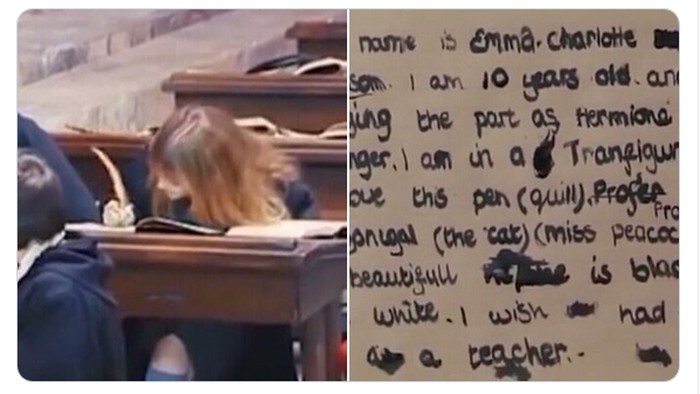 name is Emma. Charlotte
son. I am 10 years old. and
ying the part as Hermione
nger. I am in a Tranfigur
ove this pen (quill). Profer Pro
onigal (the cat) (miss peacoc
beautifull is blac
white. I wish had
a teacher.-